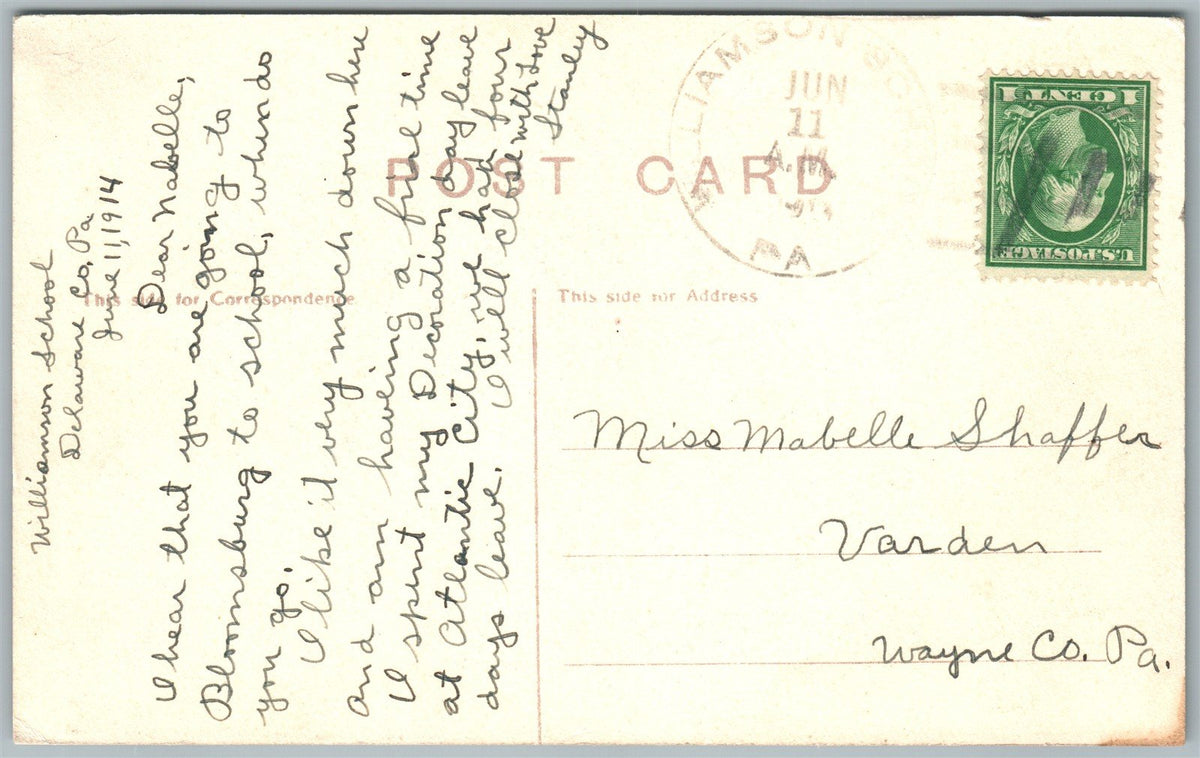 Williamson School
Delaware Co, Pa
June 11, 1914
Dear Mabelle,
I hear that you are going to
Bloomsburg to school, when do
you go.
I like it very much down here
and am having a fine time
I spent my Decoration day leave
at Atlantic City, we had four
days leave. I will close with love
Stanley
POST CARD
This side for Correspondence
This side for Address
WILLIAMSON SCHOOL
JUN
11
A.M.
PA
1 CENT 1
U.S. POSTAGE
Miss Mabelle Shaffer
Varden
Wayne Co. Pa.